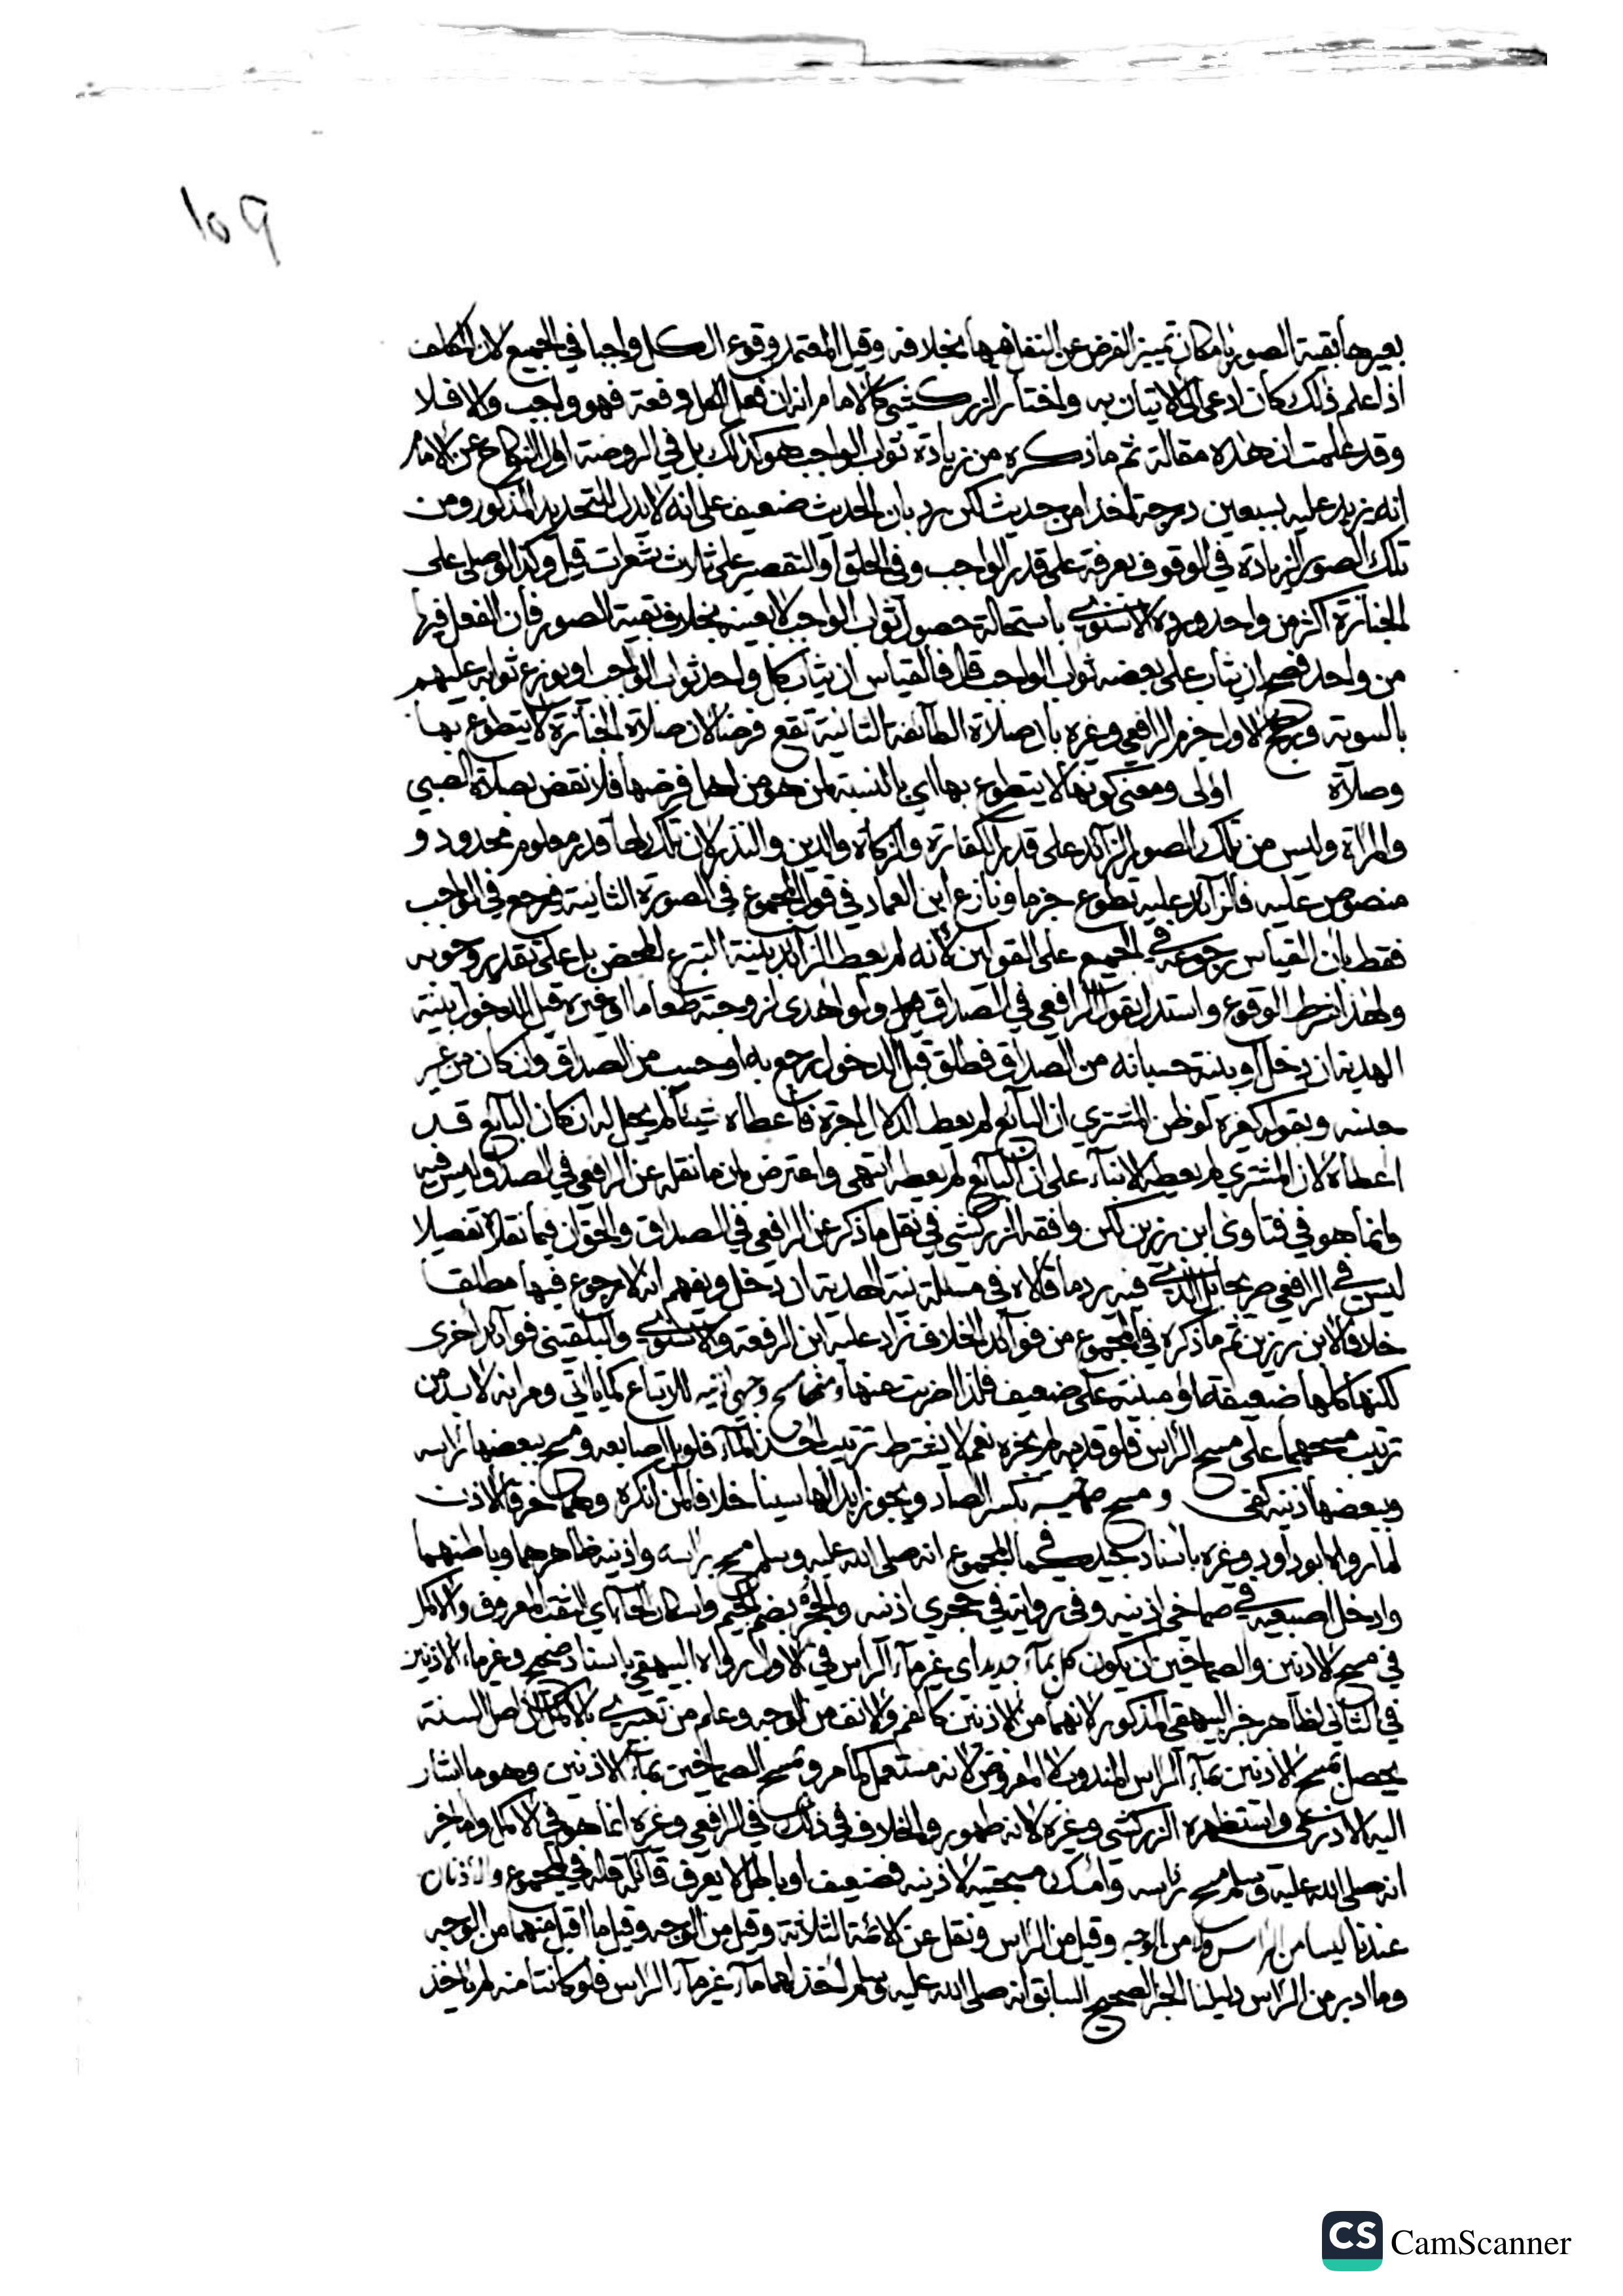 ١٥٩
بقية الصور بإمكان تمييز الفرض عن النفل فيها بخلافه وقيل المعتمد وقوع الكل واجبا في الجميع لان المكلف
اذا علم ذلك كان ادعى الى الاتيان به واختار الزركشي كالامام انه ان فعل الكل دفعة فهو واجب والا فلا
وقد علمت ان هذه مقالة ثم ما ذكره من زيادة ثواب الواجب هو كذلك بل في الروضة اول النكاح عن الامام
انه يزيد عليه بسبعين درجة اخذا من حديث لكن رد بان الحديث ضعيف على انه لا يدل للتحديد المذكور ومن
تلك الصور الزيادة في الوقوف بعرفة على قدر الواجب وفي الحلق او التقصير على ثلاث شعرات قيل وكذا لو صلى على
الجنازة اكثر من واحد ورده الاسنوي باستحالة حصول ثواب الواجب لا بعينه بخلاف بقية الصور فان الفعل فيها
من واحد فصح ان يثاب على بعضه ثواب الواجب قال فالقياس ان يثاب كل واحد ثواب الواجب او يوزع ثوابه عليهم
بالسوية ويرجح الاول جزم الرافعي وغيره بان صلاة الطائفة الثانية تقع فرضا لان صلاة الجنازة لا يتطوع بها
وصلاة اولى ومعنى كونها لا يتطوع بها اي بالنسبة لمن هو من اهل فرضها فلا نقض بصلاة الصبي
والمراة وليس من تلك الصور الزائد على قدر الكفارة والزكاة والدين والنذر لان تلك لها قدر معلوم محدود و
منصوص عليه فالزائد عليه تطوع جزما ونازع ابن العماد في قول المجموع في الصورة الثانية فيرجع في الواجب
فقط بان القياس رجوعه في الجميع على القولين لانه لم يعط الزائد بنية التبرع المحض بل على تقدير وجوبه
ولهذا شرط الوقوع واستدل بقول الرافعي في الصداق ولو اهدى لزوجته طعاما او غيره قبل الدخول بنية
الهدية ان دخل او بنية حسبانه من الصداق فطلق قبل الدخول رجع به او حسب من الصداق وان كان من غير
جنسه وبقوله كغيره لو ظن المشتري ان البائع لم يعط الدلال اجرة فاعطاه شيئا لم يحل له ان كان البائع قد
اعطاه لان المشتري لم يعطه الا بناء على ان البائع لم يعطه انتهى واعترض بان ما نقله عن الرافعي في الصداق ليس فيه
وانما هو في فتاوى ابن رزين لكن وافقه الزركشي في نقل ما ذكر عن الرافعي في الصداق والحق ان فيما نقلاه تفصيلا
ليس في الرافعي صريحا بل الذي فيه يرد ما قالاه في مسئلة نية الهدية ان دخل ويفهم انه لا رجوع فيها مطلقا
خلافا لابن رزين ثم ما ذكره في المجموع من فوائد الخلاف زاد عليه ابن الرفعة والاسنوي والبلقيني فوائد اخرى
لكنها كلها ضعيفة او مبنية على ضعيف فلذا اضربت عنها ومنها مسح وجهي اذنيه للاتباع كما ياتي ومر انه لا بد من
ترتيب مسحهما على مسح الراس فلو قدمه لم يجزه نعم لا يشترط ترتيب اخذ الماء فلو بل اصابعه ومسح ببعضها راسه
وببعضها اذنيه كفى ومسح صماخيه بكسر الصاد ويجوز ابدالها سينا خلافا لمن انكره وهما خرقا الاذن
لما رواه ابو داود وغيره باسناد جيد كما في المجموع انه صلى الله عليه وسلم مسح براسه واذنيه ظاهرهما وباطنهما
وادخل اصبعيه في صماخي اذنيه وفي رواية في جحري اذنيه والجحر بضم الجيم واسكان الحاء اي الثقب المعروف والاكمل
في مسح الاذنين والصماخين ان يكون كل بماء جديد اي غير ماء الراس في الاول رواه البيهقي باسناد صحيح وغير ماء الاذنين
في الثاني لظاهر خبر البيهقي المذكور لانهما من الاذنين كالفم والانف من الوجه وعلم من تعبيري بالاكمل ان اصل السنة
يحصل بمسح الاذنين بماء الراس المندوب لا المفروض لانه مستعمل كما مر وبمسح الصماخين بماء الاذنين وهو ما اشار
اليه الاذرعي واستظهره الزركشي وغيره لانه طهور والخلاف في ذلك في الرافعي وغيره انما هو في الاكمل واما خبر
انه صلى الله عليه وسلم مسح راسه وامسك مسبحتيه لاذنيه فضعيف او باطل لا يعرف قائله قاله في المجموع والاذنان
عندنا ليسا من الراس ولا من الوجه وقيل من الراس ونقل عن الائمة الثلاثة وقيل من الوجه وقيل ما اقبل منهما من الوجه
وما ادبر من الراس دليلنا الخبر الصحيح السابق انه صلى الله عليه وسلم اخذ لهما ماء غير ماء الراس فلو كانتا منه لم ياخذ
CS CamScanner